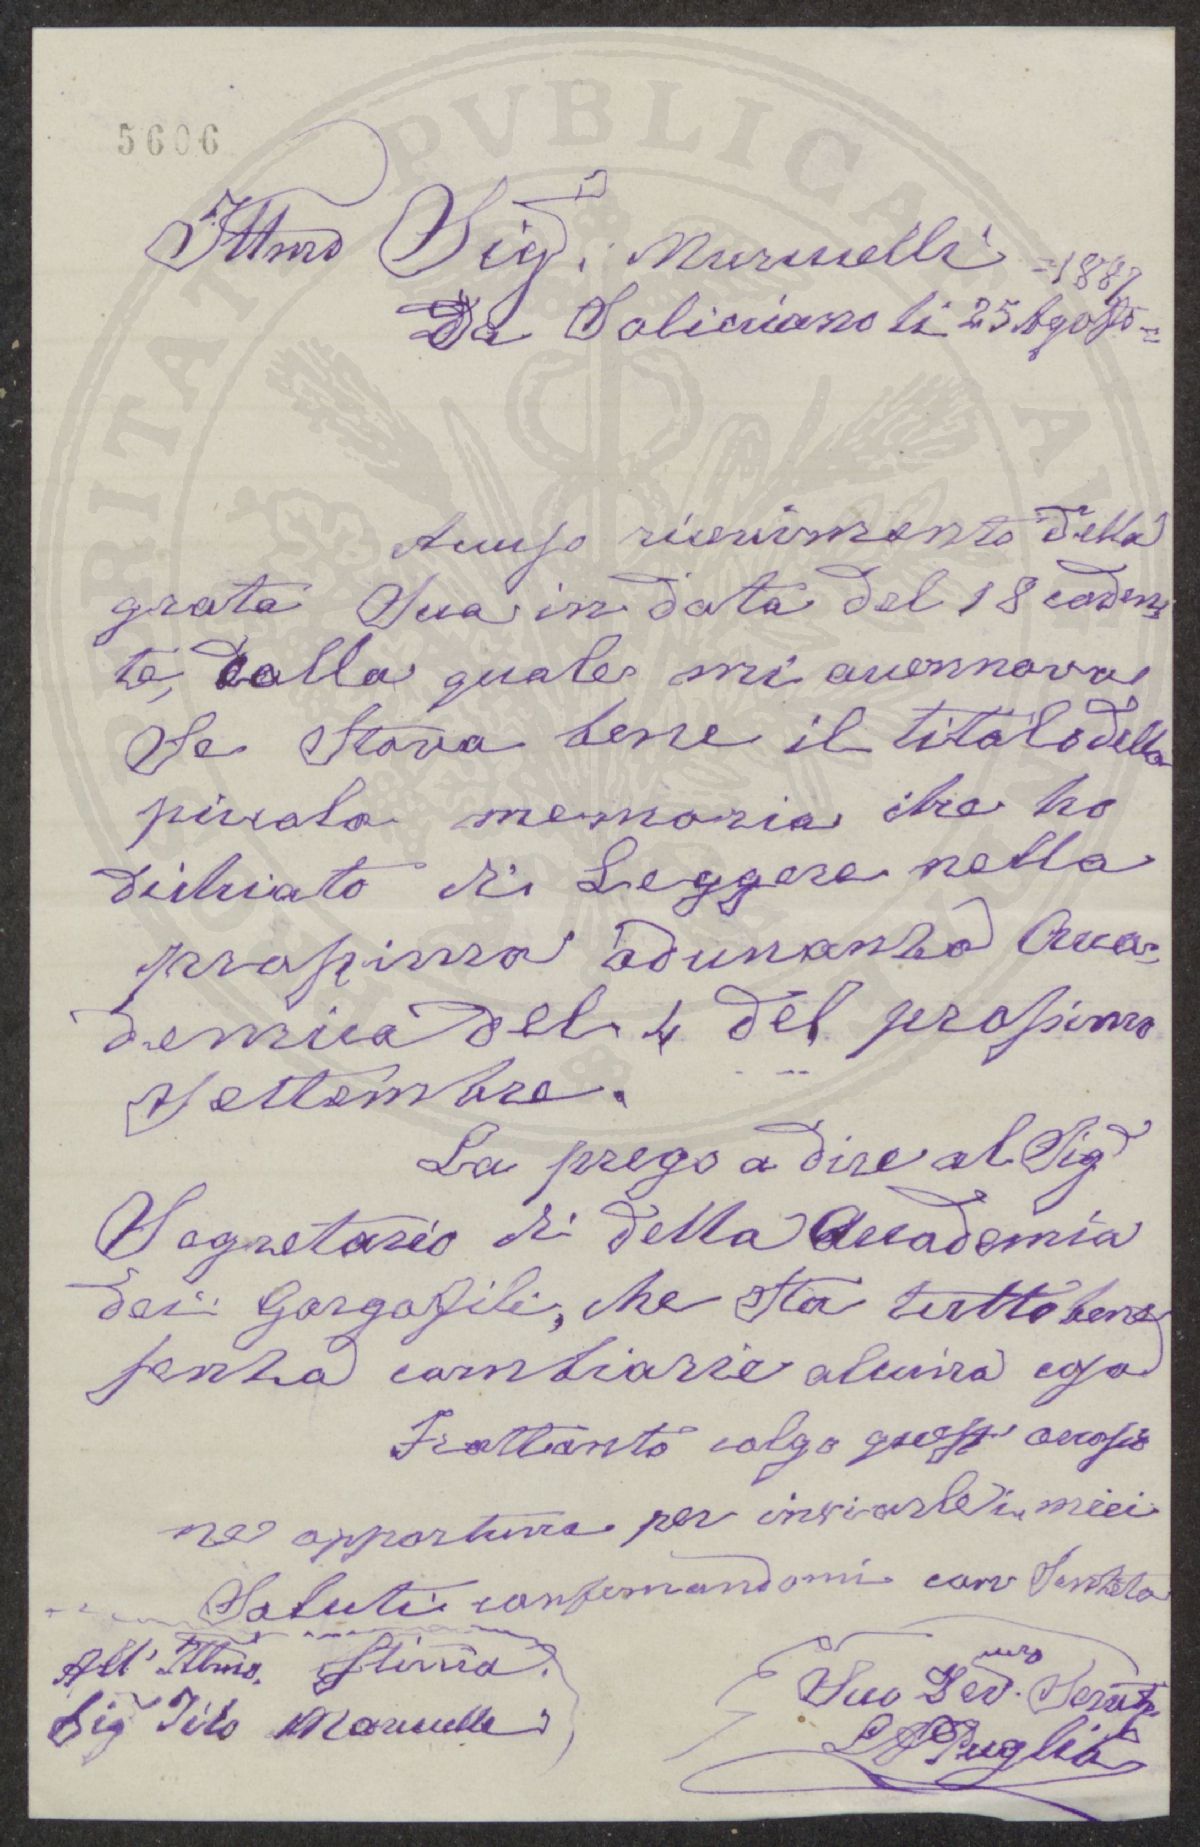 5606
Illmo Sigr. Marucelli =1887
Da Soliciano li 25 Agosto=
Accuso ricevimento della
grata Sua in data del 18 caden
te, dalla quale mi accennava
Se Stava bene il titolo della
piccola memoria che ho
dichiato di Leggere nella
prossima adunanza Acca=
demica del 4 del prossimo
Settembre.
La prego a dire al Sigr
Segretario di detta Accademia
dei Georgofili, che sta tutto bene
senza cambiare alcuna cosa
Frattanto colgo quest' occasio
ne opportuna per inviarle i miei
Saluti confermandomi con Sentita
Stima.
All' Illmo.
Sigr Tito Marucelli
Suo Dev.mo Servt
L Puglia
PVBLICAE